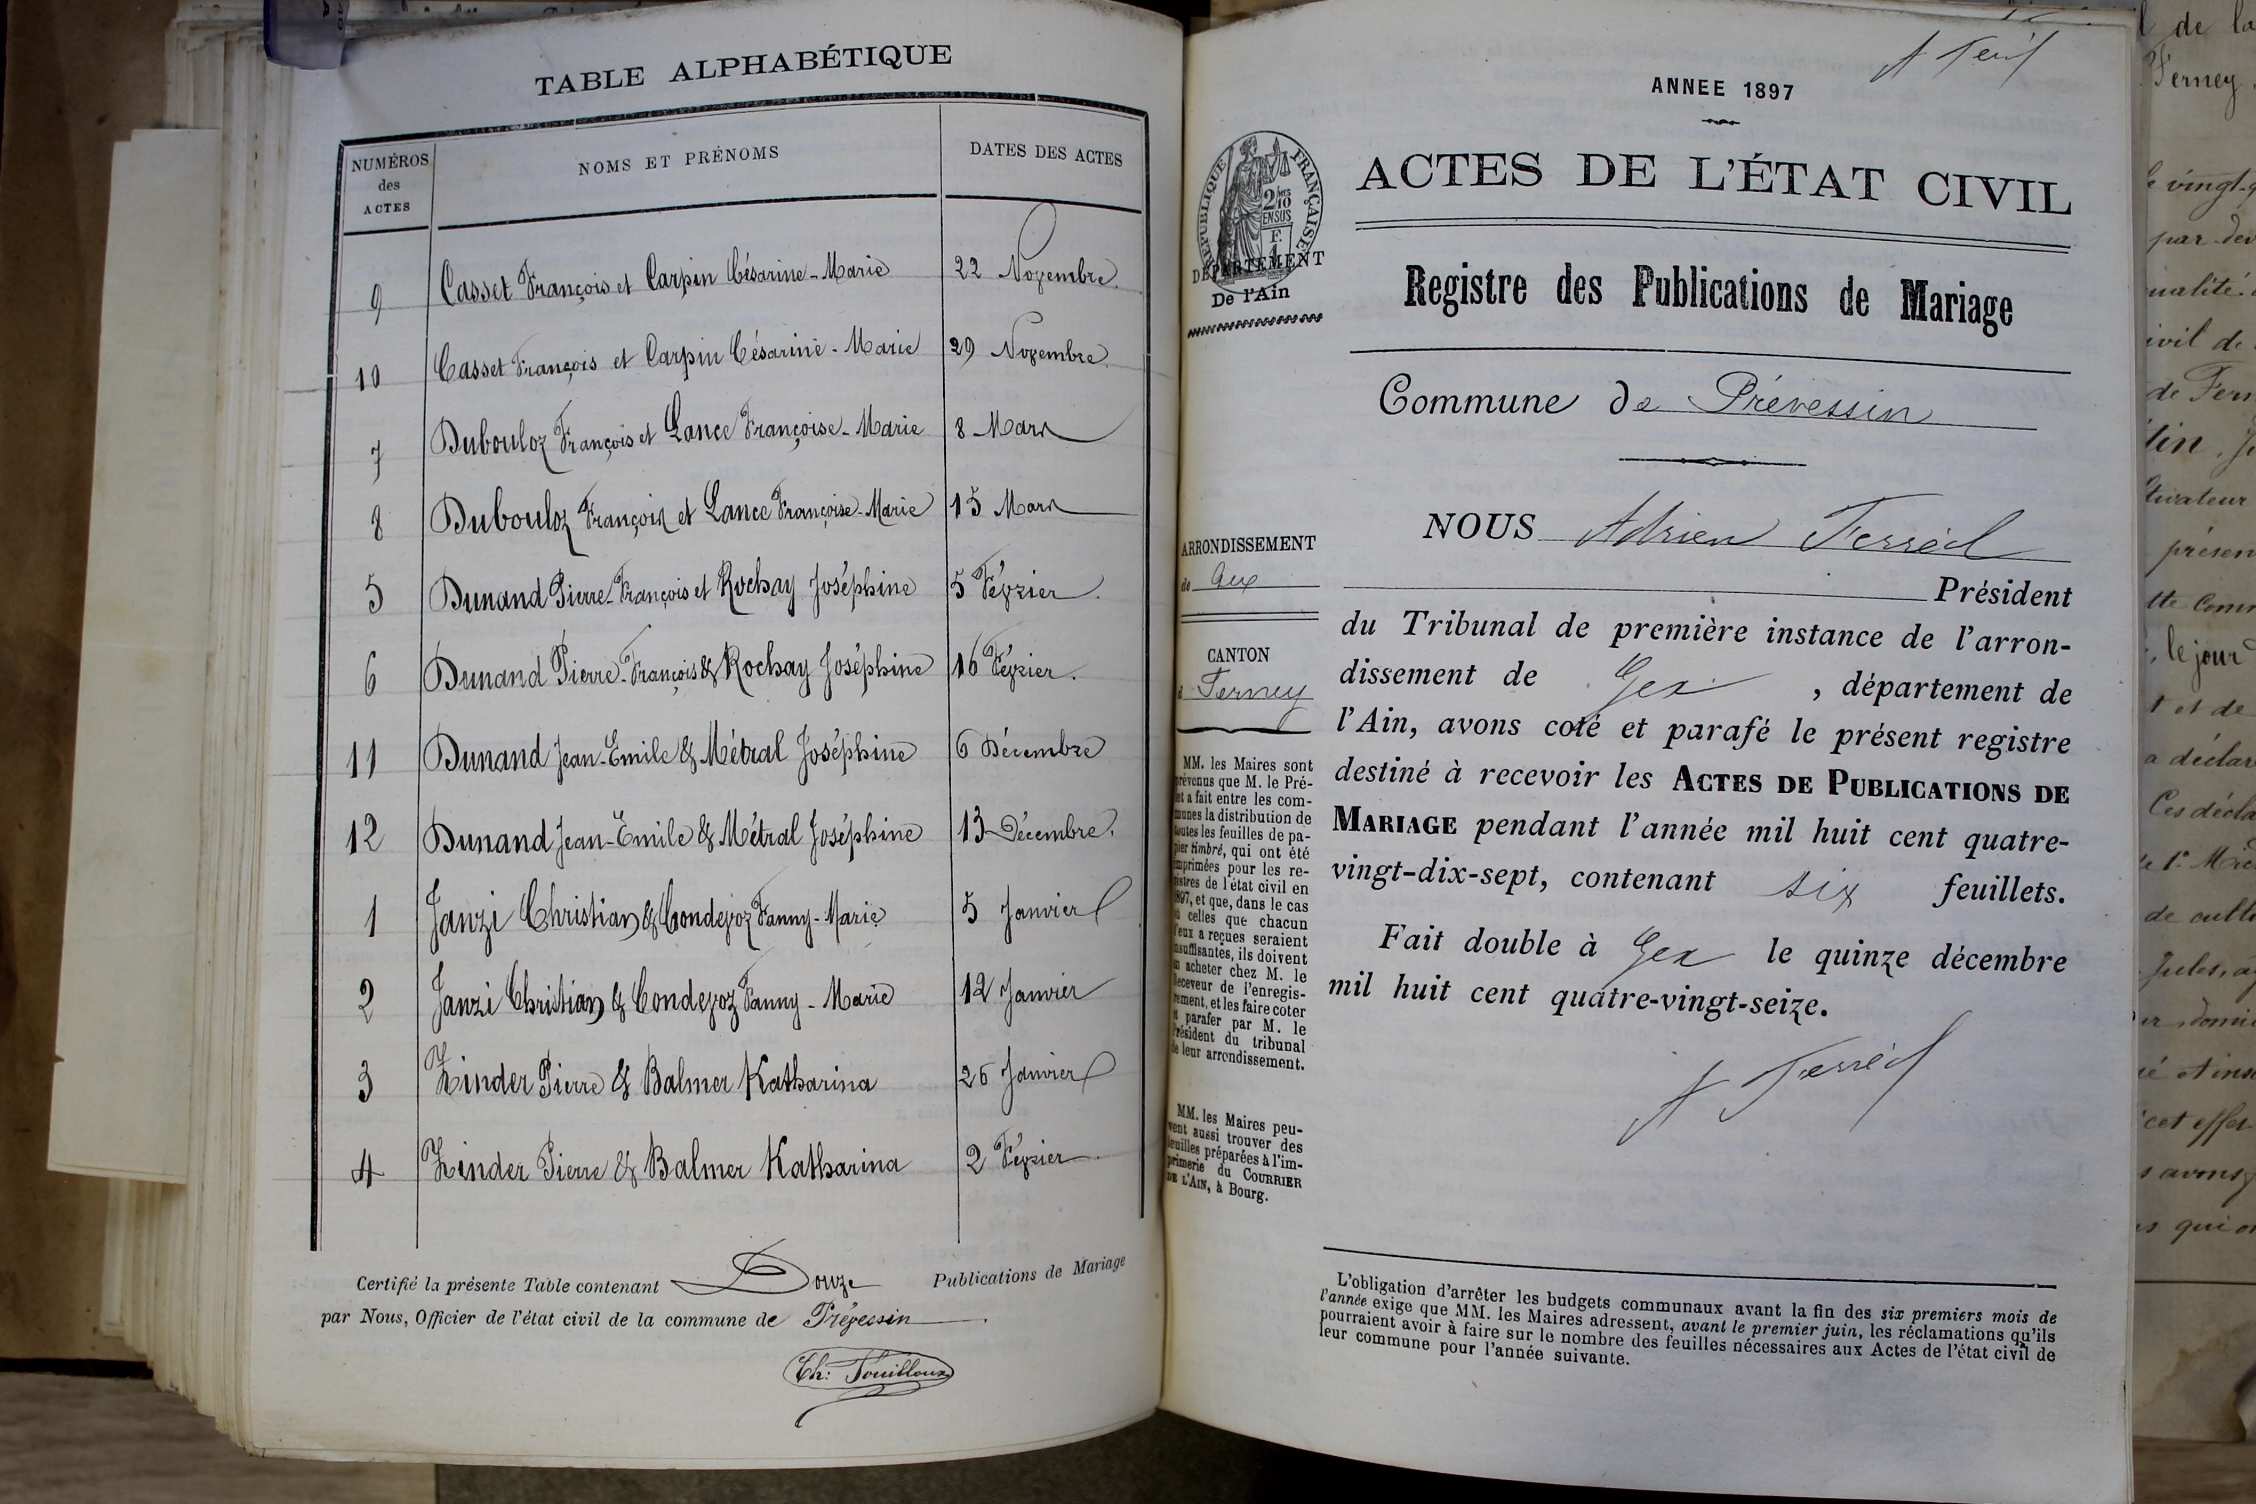 TABLE ALPHABÉTIQUE
NUMÉROS des ACTES
NOMS ET PRÉNOMS
DATES DES ACTES
9 Casset François et Carpin Césarine-Marie 22 Novembre.
10 Casset François et Carpin Césarine-Marie 29 Novembre.
7 Dubouloz François et Lance Françoise-Marie 8 Mars
8 Dubouloz François et Lance Françoise-Marie 15 Mars
5 Dunand Pierre-François et Rochay Joséphine 5 Février.
6 Dunand Pierre-François & Rochay Joséphine 16 Février.
11 Dunand Jean-Emile & Métral Joséphine 6 Décembre
12 Dunand Jean-Emile & Métral Joséphine 13 Décembre.
1 Janzi Christian & Condevoz Fanny-Marie 5 Janvier
2 Janzi Christian & Condevoz Fanny-Marie 12 Janvier
3 Zinder Pierre & Balmer Katharina 26 Janvier
4 Zinder Pierre & Balmer Katharina 2 Février
Certifié la présente Table contenant Douze Publications de Mariage
par Nous, Officier de l'état civil de la commune de Prévessin.
Th: Fouilloux
ANNEE 1897
RÉPUBLIQUE FRANÇAISE
2/10
EN SUS
F.
1
DÉPARTEMENT
De l'Ain
ACTES DE L'ÉTAT CIVIL
Registre des Publications de Mariage
Commune de Prévessin
ARRONDISSEMENT
de Gex
CANTON
Ferney
MM. les Maires sont
prévenus que M. le Pré-
fet a fait entre les com-
munes la distribution de
toutes les feuilles de pa-
pier timbré, qui ont été
imprimées pour les re-
gistres de l'état civil en
1897, et que, dans le cas
où celles que chacun
d'eux a reçues seraient
insuffisantes, ils doivent
en acheter chez M. le
Receveur de l'enregis-
trement, et les faire coter
et parafer par M. le
Président du tribunal
de leur arrondissement.
MM. les Maires peu-
vent aussi trouver des
feuilles préparées à l'im-
primerie du COURRIER
DE L'AIN, à Bourg.
NOUS Adrien Ferréol
Président
du Tribunal de première instance de l'arron-
dissement de Gex, département de
l'Ain, avons coté et parafé le présent registre
destiné à recevoir les ACTES DE PUBLICATIONS DE
MARIAGE pendant l'année mil huit cent quatre-
vingt-dix-sept, contenant six feuillets.
Fait double à Gex le quinze décembre
mil huit cent quatre-vingt-seize.
L'obligation d'arrêter les budgets communaux avant la fin des six premiers mois de
l'année exige que MM. les Maires adressent, avant le premier juin, les réclamations qu'ils
pourraient avoir à faire sur le nombre des feuilles nécessaires aux Actes de l'état civil de
leur commune pour l'année suivante.
de la
Ferney